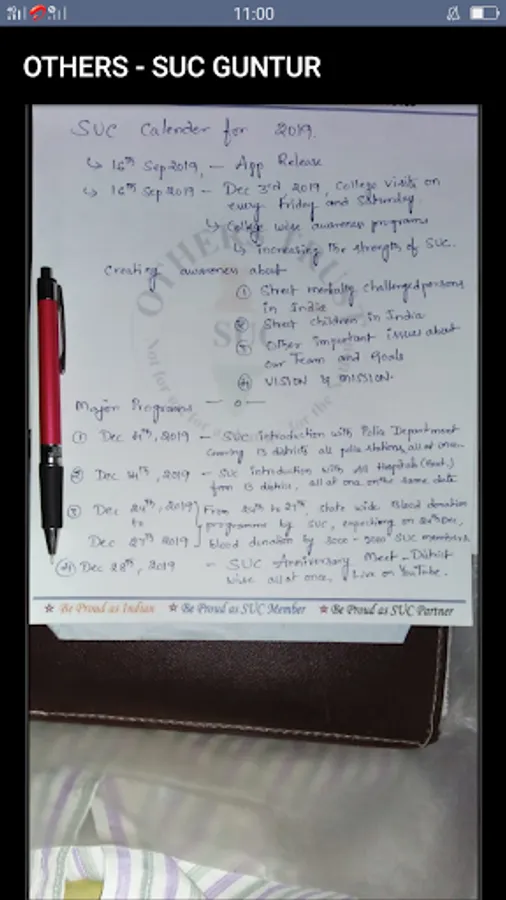 11:00
OTHERS - SUC GUNTUR
SUC Calender for 2019.
↳ 16th Sep 2019, — App Release
↳ 16th Sep 2019 - Dec 3rd 2019, College visits on
every Friday and Saturday
↳ College wise awareness programs
↳ increasing the strength of SUC.
Creating awareness about
① Street mentally challenged persons
in India
② Street children in India
③ Other important issues about
our Team and Goals
④ VISION & MISSION.
— o —
Major Programs
① Dec 2019 - SUC introduction with Police Department
13 districts all police stations, all at once.
② Dec 14th, 2019 - SUC introduction with All Hospitals (Govt.)
from 13 districts, all at one on the same date
③ Dec 24th, 2019 From 24th to 27th, state wide Blood donation
to programme by SUC, expecting on 24th Dec,
Dec 27th 2019 blood donation by SUC members
④ Dec 28th, 2019 - SUC Anniversary Meet - District
wise all at once, Live on YouTube.
OTHERS TRUST
SUC
★ Be Proud as Indian ★ Be Proud as SUC Member ★ Be Proud as SUC Partner